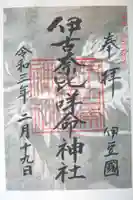 奉拝
伊豆國
伊古奈比咩命神社
令和三年二月十九日